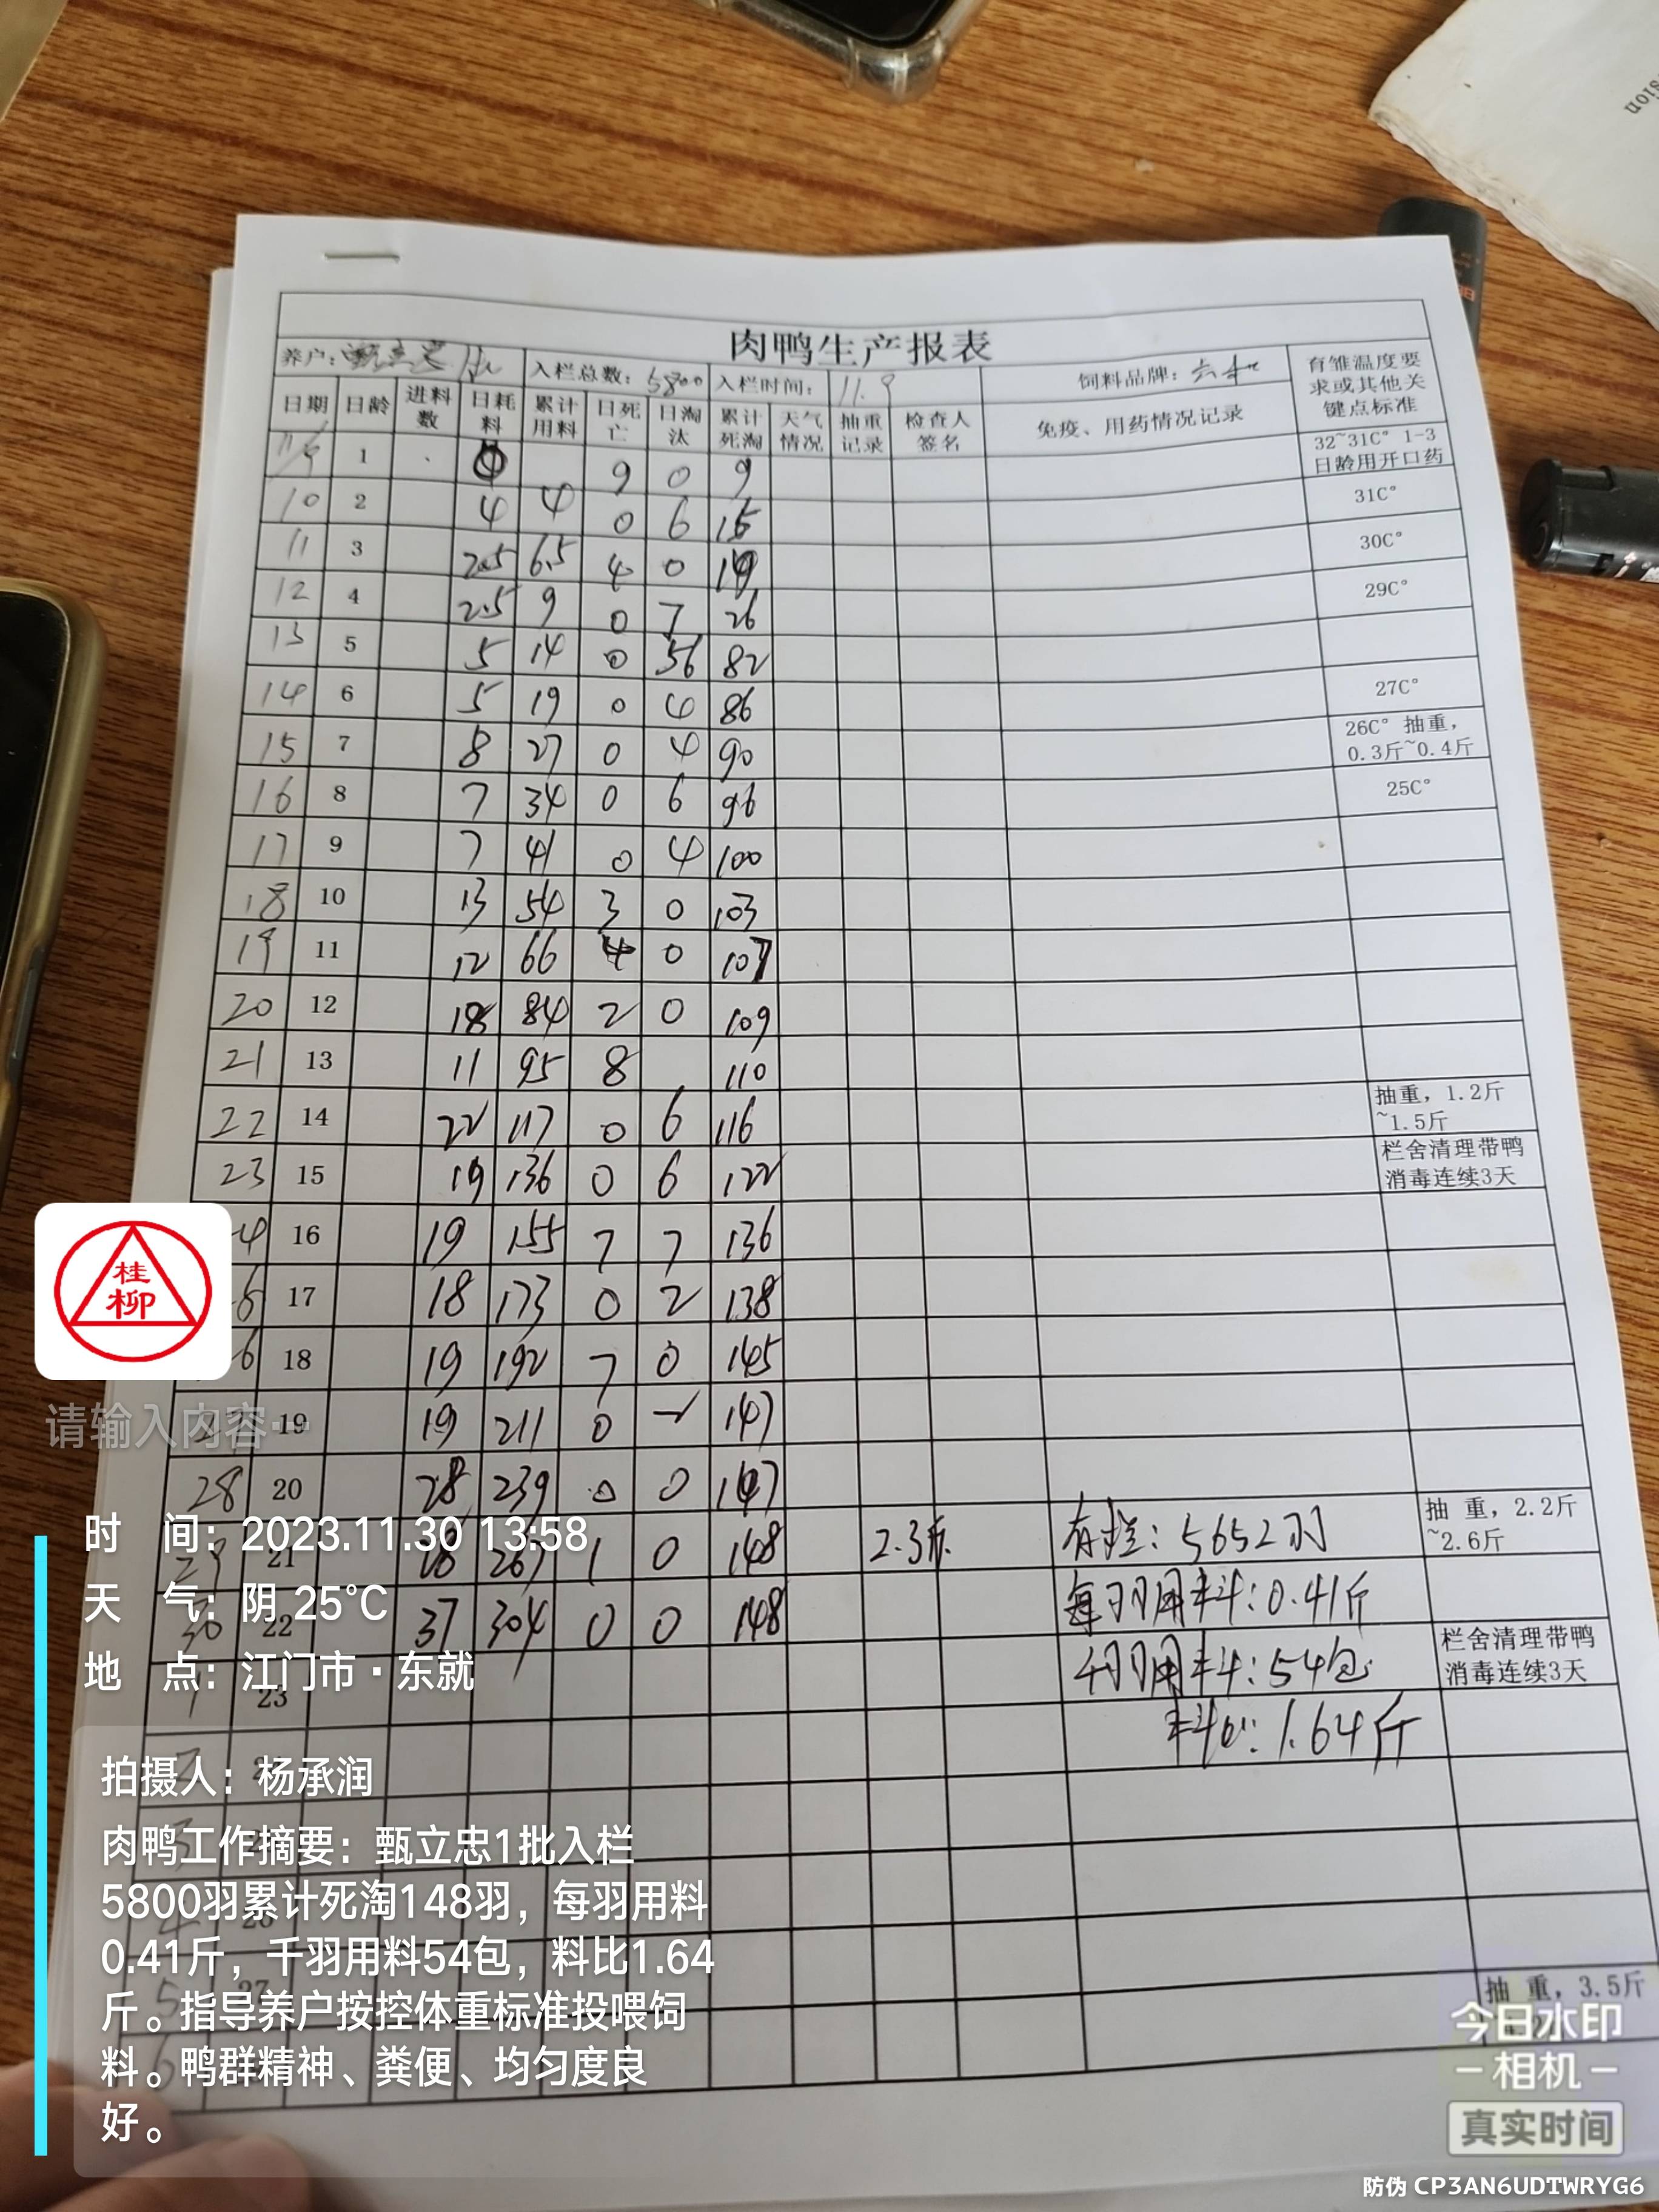 sion
肉鸭生产报表
养户: 入栏总数: 5800 入栏时间: 11.9 饲料品牌: 六和 育雏温度要求或其他关键点标准
日期 日龄 进料数 日耗料 累计用料 日死亡 日淘汰 累计死淘 天气情况 抽重记录 检查人签名 免疫、用药情况记录
11/9 1 9 0 9 32~31C° 1-3日龄用开口药
10 2 4 4 0 6 15 31C°
11 3 2.5 6.5 4 0 19 30C°
12 4 2.5 9 0 7 26 29C°
13 5 5 14 0 56 82
14 6 5 19 0 4 86 27C°
15 7 8 27 0 4 90 26C° 抽重，0.3斤~0.4斤
16 8 7 34 0 6 96 25C°
17 9 7 41 0 4 100
18 10 13 54 3 0 103
19 11 12 66 4 0 107
20 12 18 84 2 0 109
21 13 11 95 8 110
22 14 22 117 0 6 116 抽重，1.2斤~1.5斤
23 15 19 136 0 6 122 栏舍清理带鸭消毒连续3天
4 16 19 155 7 7 136
5 17 18 173 0 2 138
6 18 19 192 7 0 145
19 19 211 0 147
28 20 28 239 0 0 147
29 21 28 267 1 0 148 2.3斤 有栏: 5652羽 抽 重，2.2斤~2.6斤
30 22 37 304 0 0 148 每羽用料: 0.41斤
1 23 千羽用料: 54包 栏舍清理带鸭消毒连续3天
料比: 1.64斤
2
3
4
5 27 抽 重，3.5斤
6
桂
柳
请输入内容…
时 间: 2023.11.30 13:58
天 气: 阴 25°C
地 点: 江门市·东就
拍摄人: 杨承润
肉鸭工作摘要: 甄立忠1批入栏
5800羽累计死淘148羽，每羽用料
0.41斤，千羽用料54包，料比1.64
斤。指导养户按控体重标准投喂饲
料。鸭群精神、粪便、均匀度良
好。
今日水印
-相机-
真实时间
防伪 CP3AN6UDTWRYG6